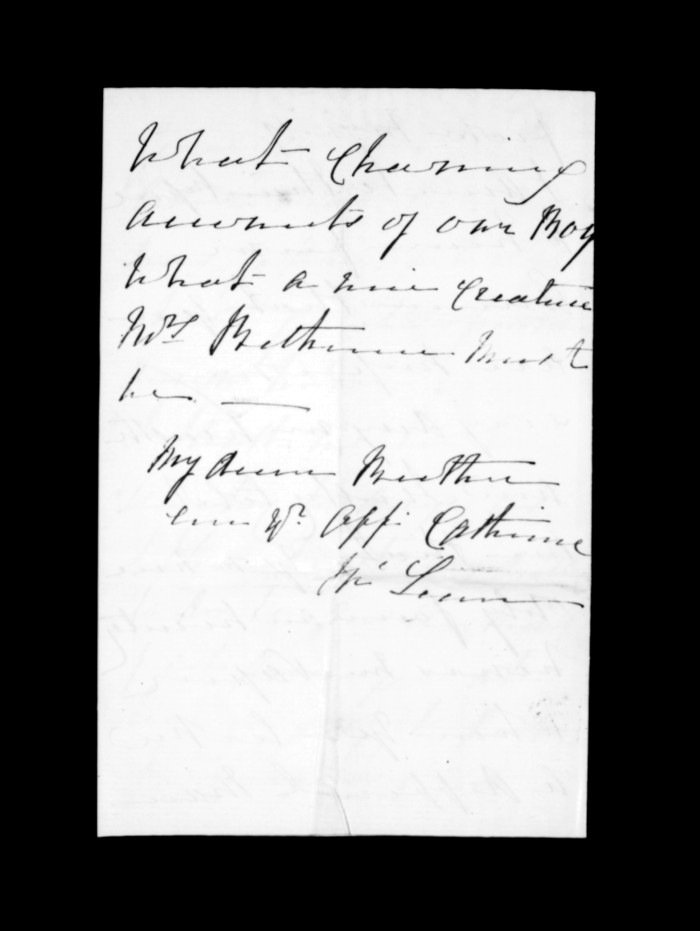 What Charming
accounts of our Boy
What a nice Creature
Mrs Bethune must
be —
My dear Brother
ever Yr. affe. Catherine
Mc Lean